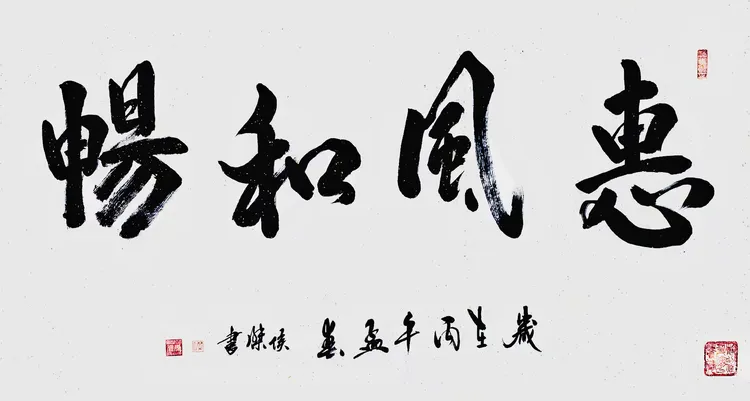 惠風和暢
歲在丙午孟春 侯傑書